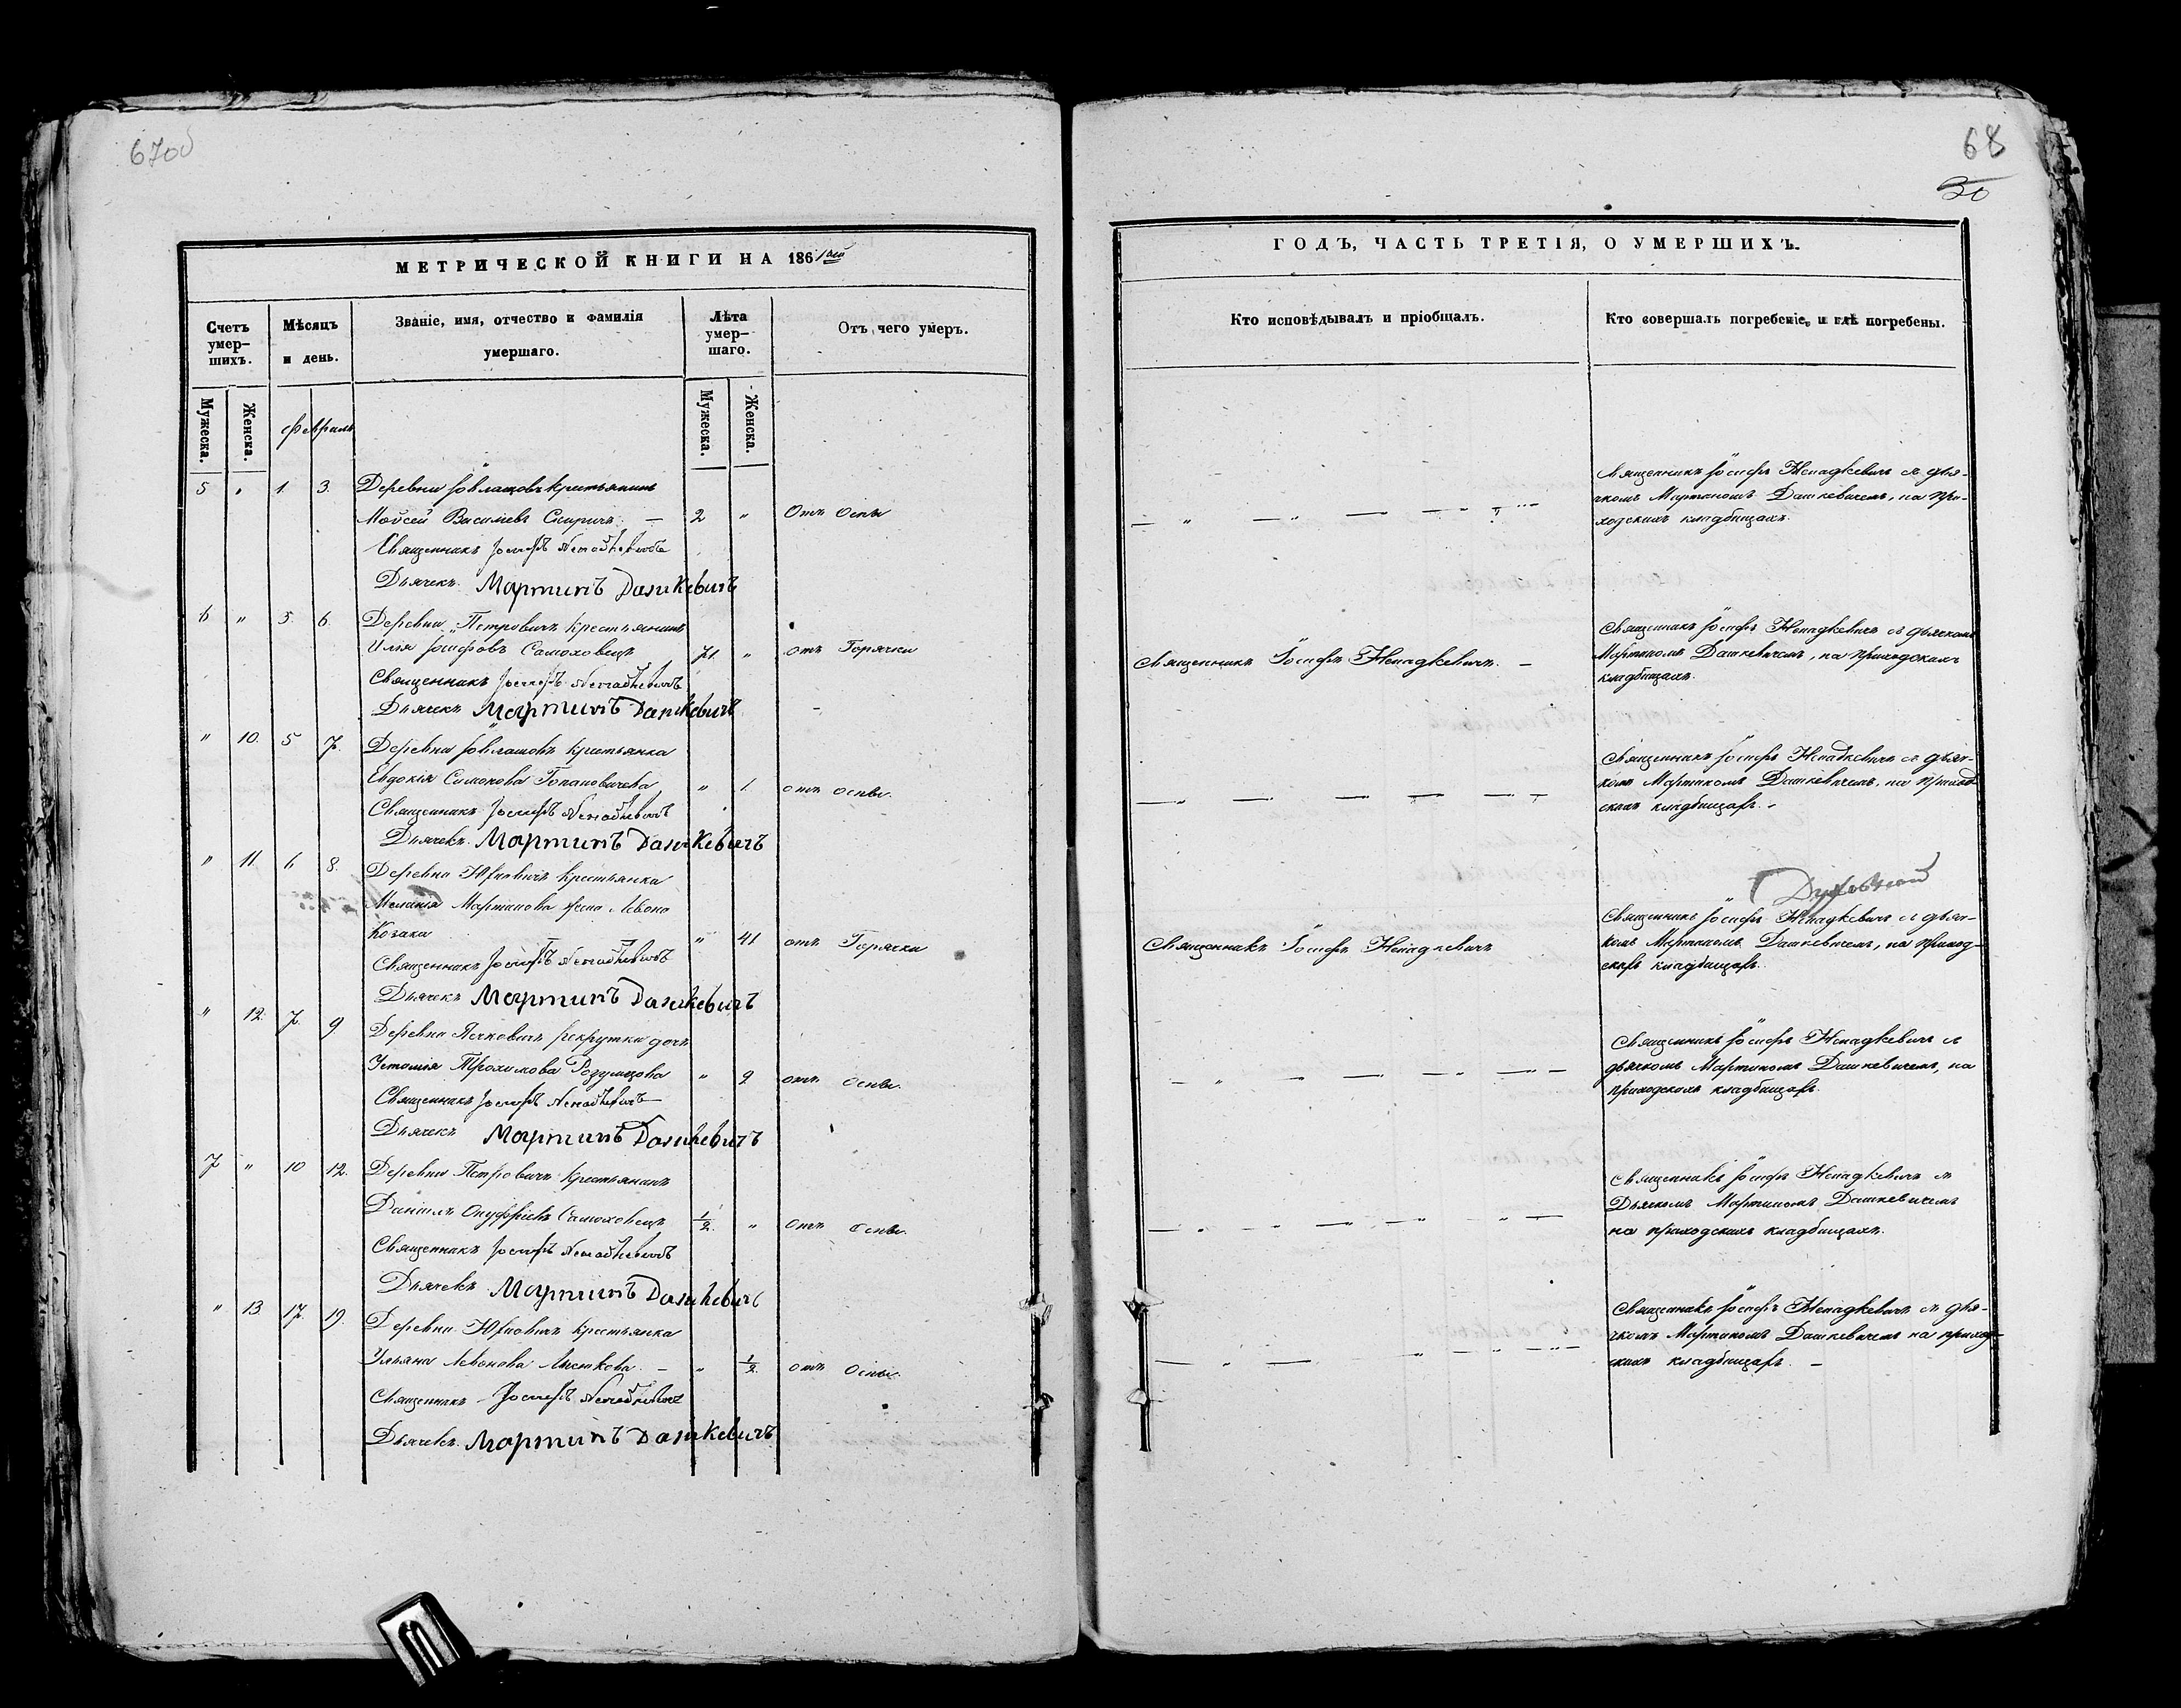 67об
68
30
МЕТРИЧЕСКОЙ КНИГИ НА 1861
ГОДЪ, ЧАСТЬ ТРЕТІЯ, О УМЕРШИХЪ.
Счетъ умер-
шихъ.
Мѣсяцъ
и день.
Званіе, имя, отчество и фамилія
умершаго.
Лѣта
умер-
шаго.
Отъ чего умеръ.
Кто исповѣдывалъ и пріобщалъ.
Кто совершалъ погребеніе, и гдѣ погребены.
Мужеска.
Женска.
Февраль
Мужеска.
Женска.
5 " 1. 3. Деревни крестьянинъ
Мойсей Василіевъ — 2 " Отъ Оспы
Священникъ Іосифъ Ненадкевичъ
Дьячекъ Мартинъ Дашкевичъ
Священникъ Іосифъ Ненадкевичъ съ дья-
чкомъ Мартиномъ Дашкевичемъ, на при-
ходскихъ кладбищахъ.
6 " 5. 6. Деревни Петровичъ крестьянинъ
Илія Іосифовъ Самоховецъ 71 " отъ Горячки
Священникъ Іосифъ Ненадкевичъ
Дьячекъ Мартинъ Дашкевичъ
Священникъ Іосифъ Ненадкевичъ. —
Священникъ Іосифъ Ненадкевичъ съ дьячкомъ
Мартиномъ Дашкевичемъ, на приходскихъ
кладбищахъ.
" 10. 5 7. Деревни крестьянка
Евдокія Симонова " 1. отъ оспы.
Священникъ Іосифъ Ненадкевичъ
Дьячекъ Мартинъ Дашкевичъ
Священникъ Іосифъ Ненадкевичъ съ дьяч-
комъ Мартиномъ Дашкевичемъ, на приход-
скихъ кладбищахъ.
" 11. 6 8. Деревни Юхновичъ крестьянка
Меланія Мартинова жена Левона
Козака " 41 отъ Горячки
Священникъ Іосифъ Ненадкевичъ
Дьячекъ Мартинъ Дашкевичъ
Священникъ Іосифъ Ненадкевичъ
Священникъ Іосифъ Ненадкевичъ съ дьяч-
комъ Мартиномъ Дашкевичемъ, на приход-
скихъ кладбищахъ.
" 12. 7. 9 Деревни рекрутки дочь
Трохимова " 2 отъ оспы.
Священникъ Іосифъ Ненадкевичъ
Дьячекъ Мартинъ Дашкевичъ
Священникъ Іосифъ Ненадкевичъ съ
дьячкомъ Мартиномъ Дашкевичемъ, на
приходскихъ кладбищахъ.
7 " 10 12. Деревни Петровичъ крестьянинъ
Даніилъ Онуфріевъ Самоховецъ 1/2. " Отъ оспы.
Священникъ Іосифъ Ненадкевичъ
Дьячекъ Мартинъ Дашкевичъ
Священникъ Іосифъ Ненадкевичъ съ
Дьячкомъ Мартиномъ Дашкевичемъ
на приходскихъ кладбищахъ.
" 13. 17. 19. Деревни Юхновичъ крестьянка
Ульяна Левонова — " 1/2. отъ Оспы.
Священникъ Іосифъ Ненадкевичъ
Дьячекъ Мартинъ Дашкевичъ
Священникъ Іосифъ Ненадкевичъ съ дья-
чкомъ Мартиномъ Дашкевичемъ на приход-
скихъ кладбищахъ. —